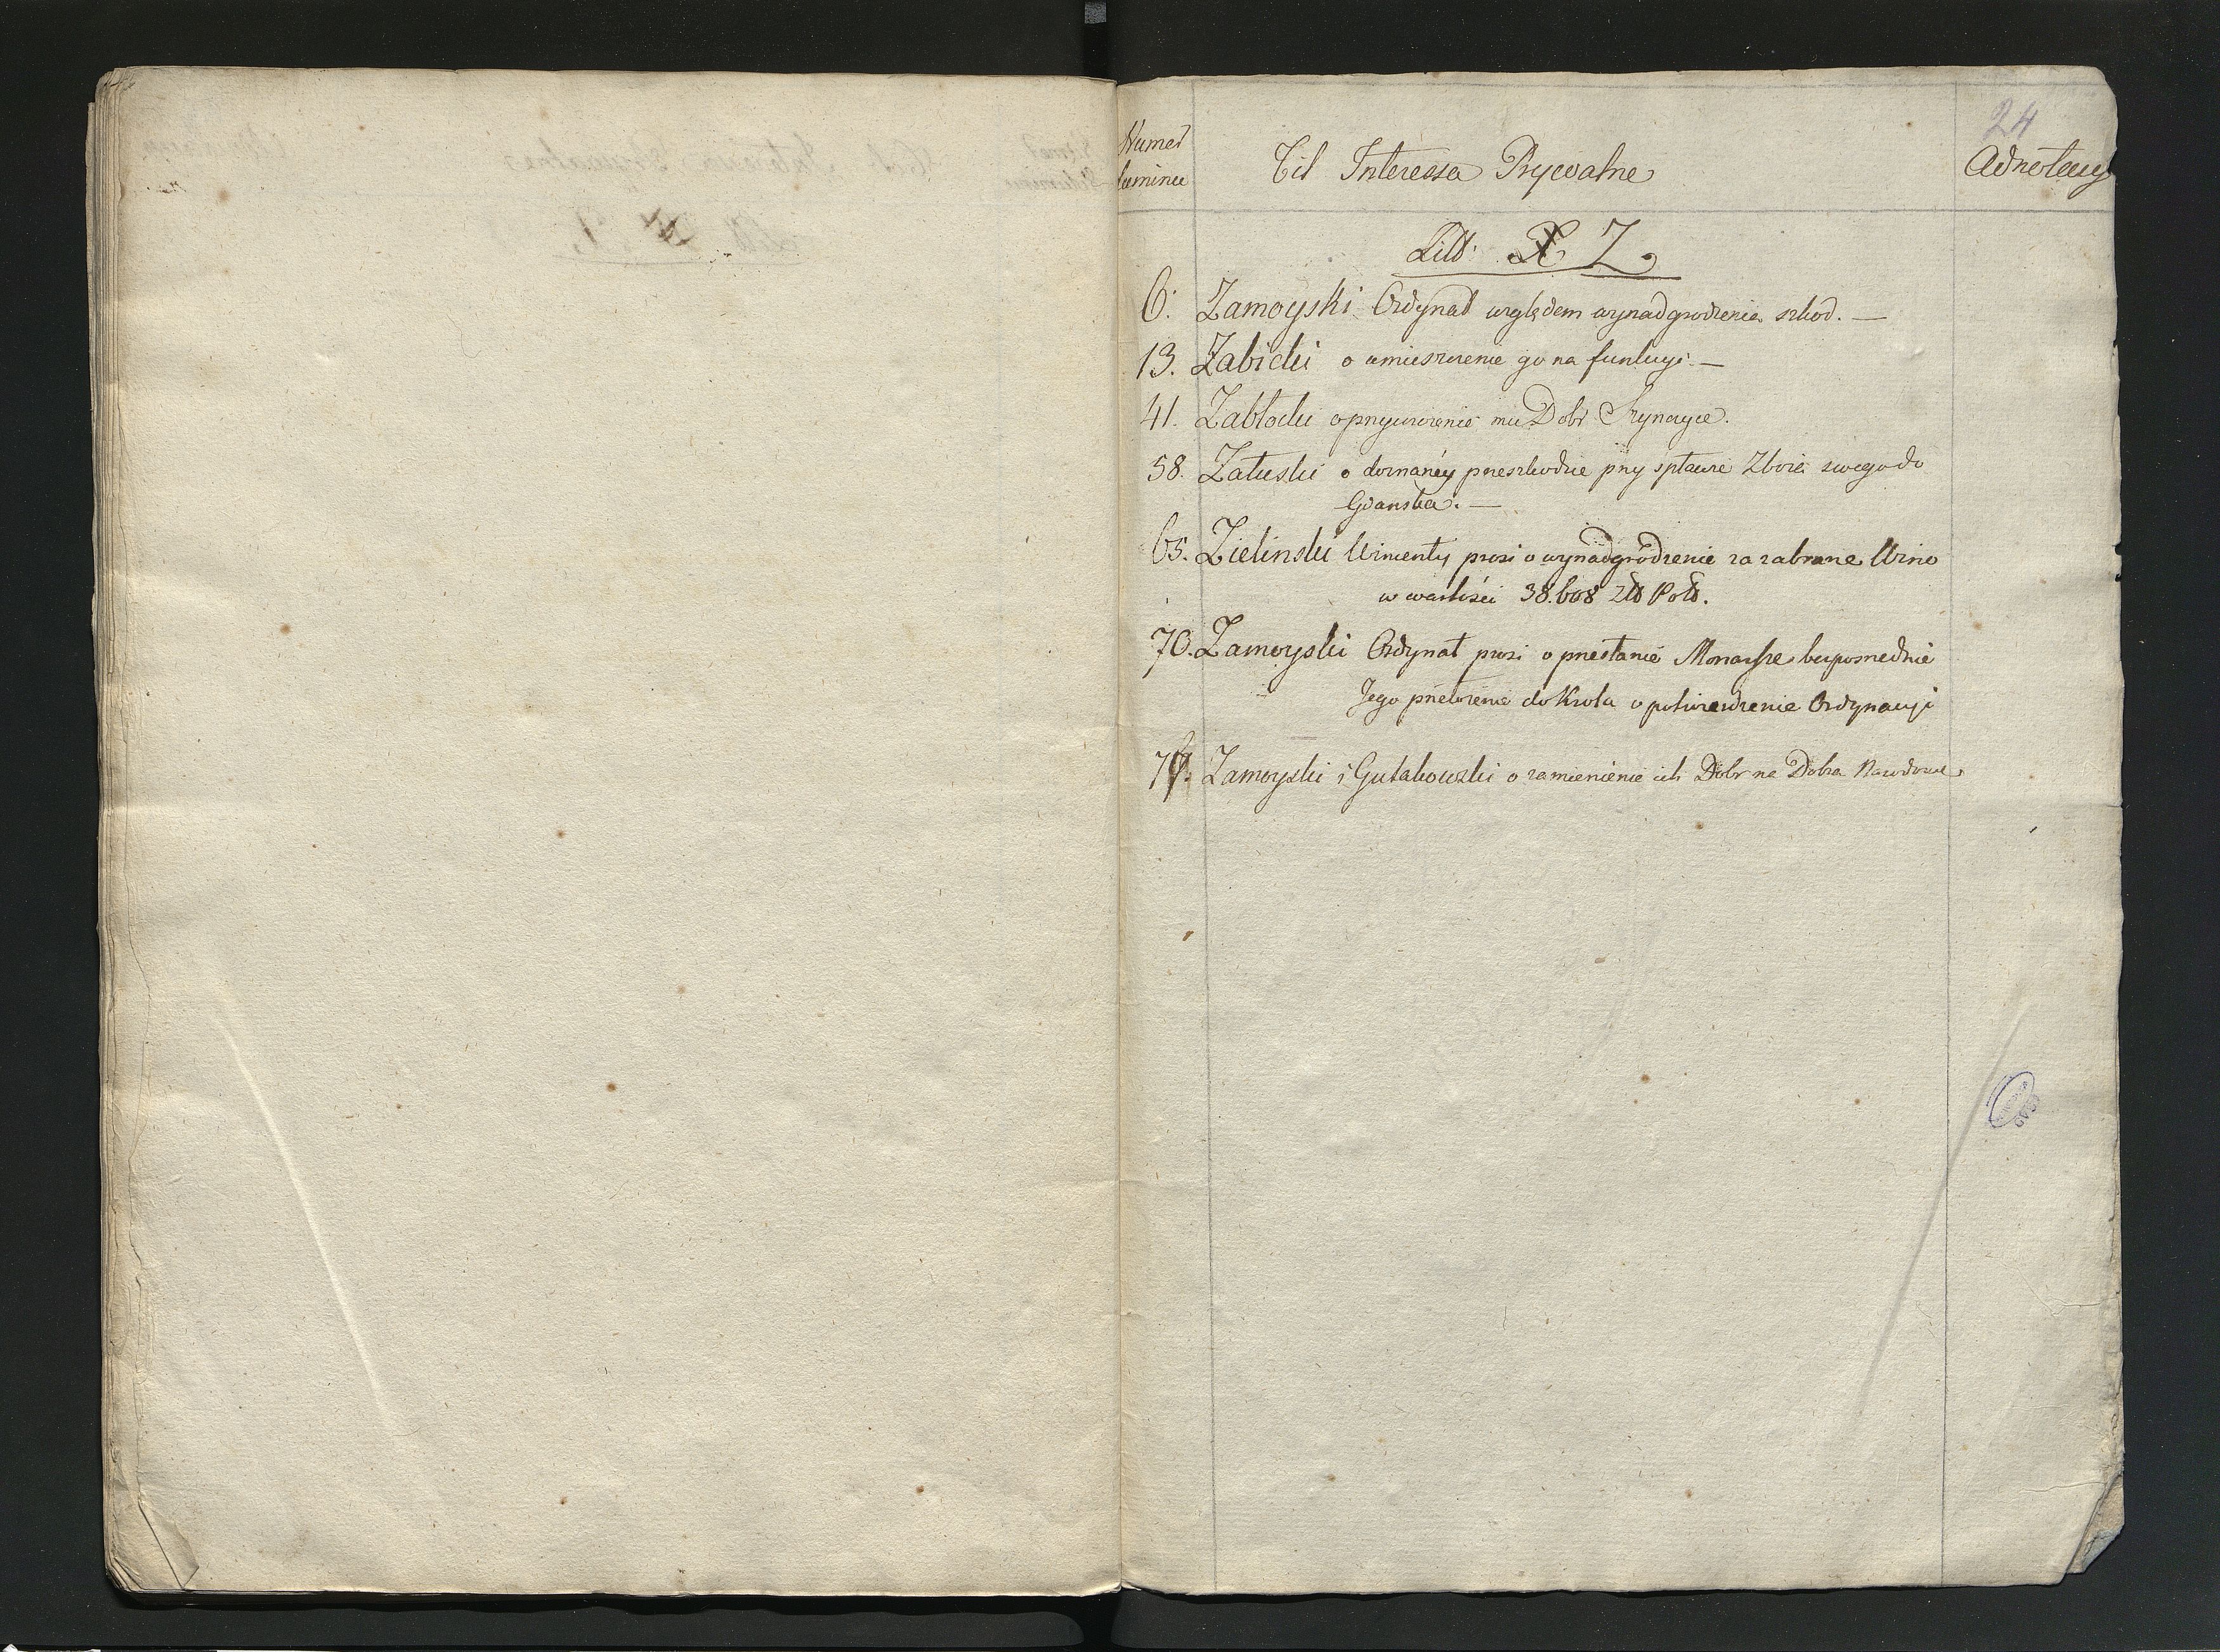 24
Numer
luminu
Tit Interessa Prywatne
Adnotacy
Litt. Z
6. Zamoyski Ordynat względem wynadgrodzenia szkod. —
13. Zabicki o umieszczenie go na funkcyi. —
41. Zabłocki o przywrócenie mu Dobr
58. Załuski o doznanéy przeszkodzie przy spławie Zboża swego do
Gdanska. —
65. Zielinski Wincenty prosi o wynadgródzenie za zabrane Wino
w wartości 38.608 Złt Pols.
70. Zamoyski Ordynat prosi o przesłanie Monarsze bezposrednie
Jego przełożenia do Krola o potwierdzenie Ordynacyi
Zamoyski i Gutakowski o zamienienie ich Dobr na Dobra Narodowe